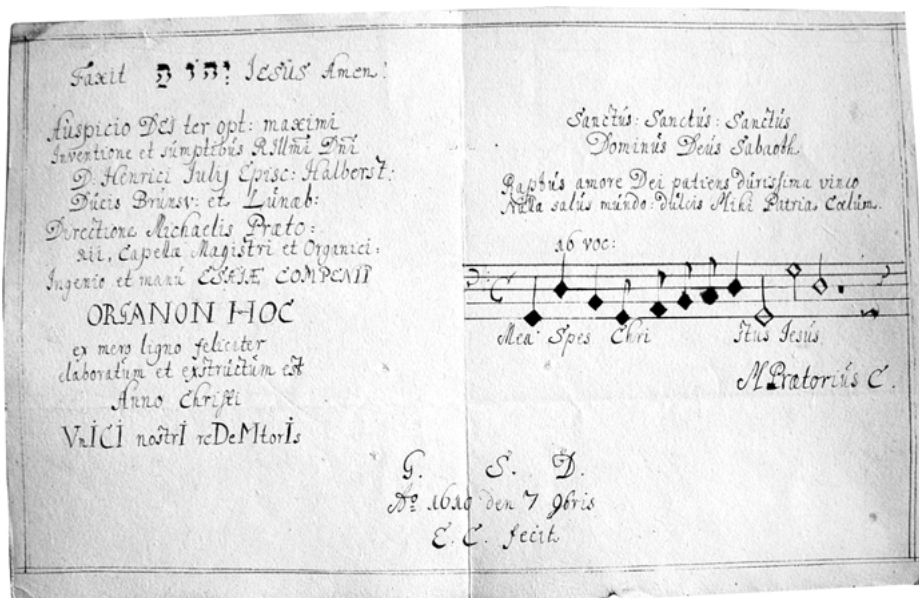 Faxit יהוה Iesus Amen:
Auspicio DEI ter opt: maximi
Inventione et sumptibus R Illmi Dni
D. Henrici Iulij Episc: Halberst:
Ducis Brunsv: et Lunab:
Directione Michaelis Præto:
rii, Capellæ Magistri et Organici:
Ingenio et manu ESAIÆ COMPENII
ORGANON HOC
ex mero ligno feliciter
elaboratum et exstructum est
Anno Christi
VnICI nostrI reDeMtorIs
Sanctus: Sanctus: Sanctus
Dominus Deus Sabaoth.
Raptus amore Dei patiens durissima vinco
Nulla salus mundo: dulcis Mihi Patria Cœlum.
16 voc:
Mea Spes Chri stus Iesus.
M Prætorius C.
G. S. D.
Aº 1610 den 7 9bris
E. C. fecit